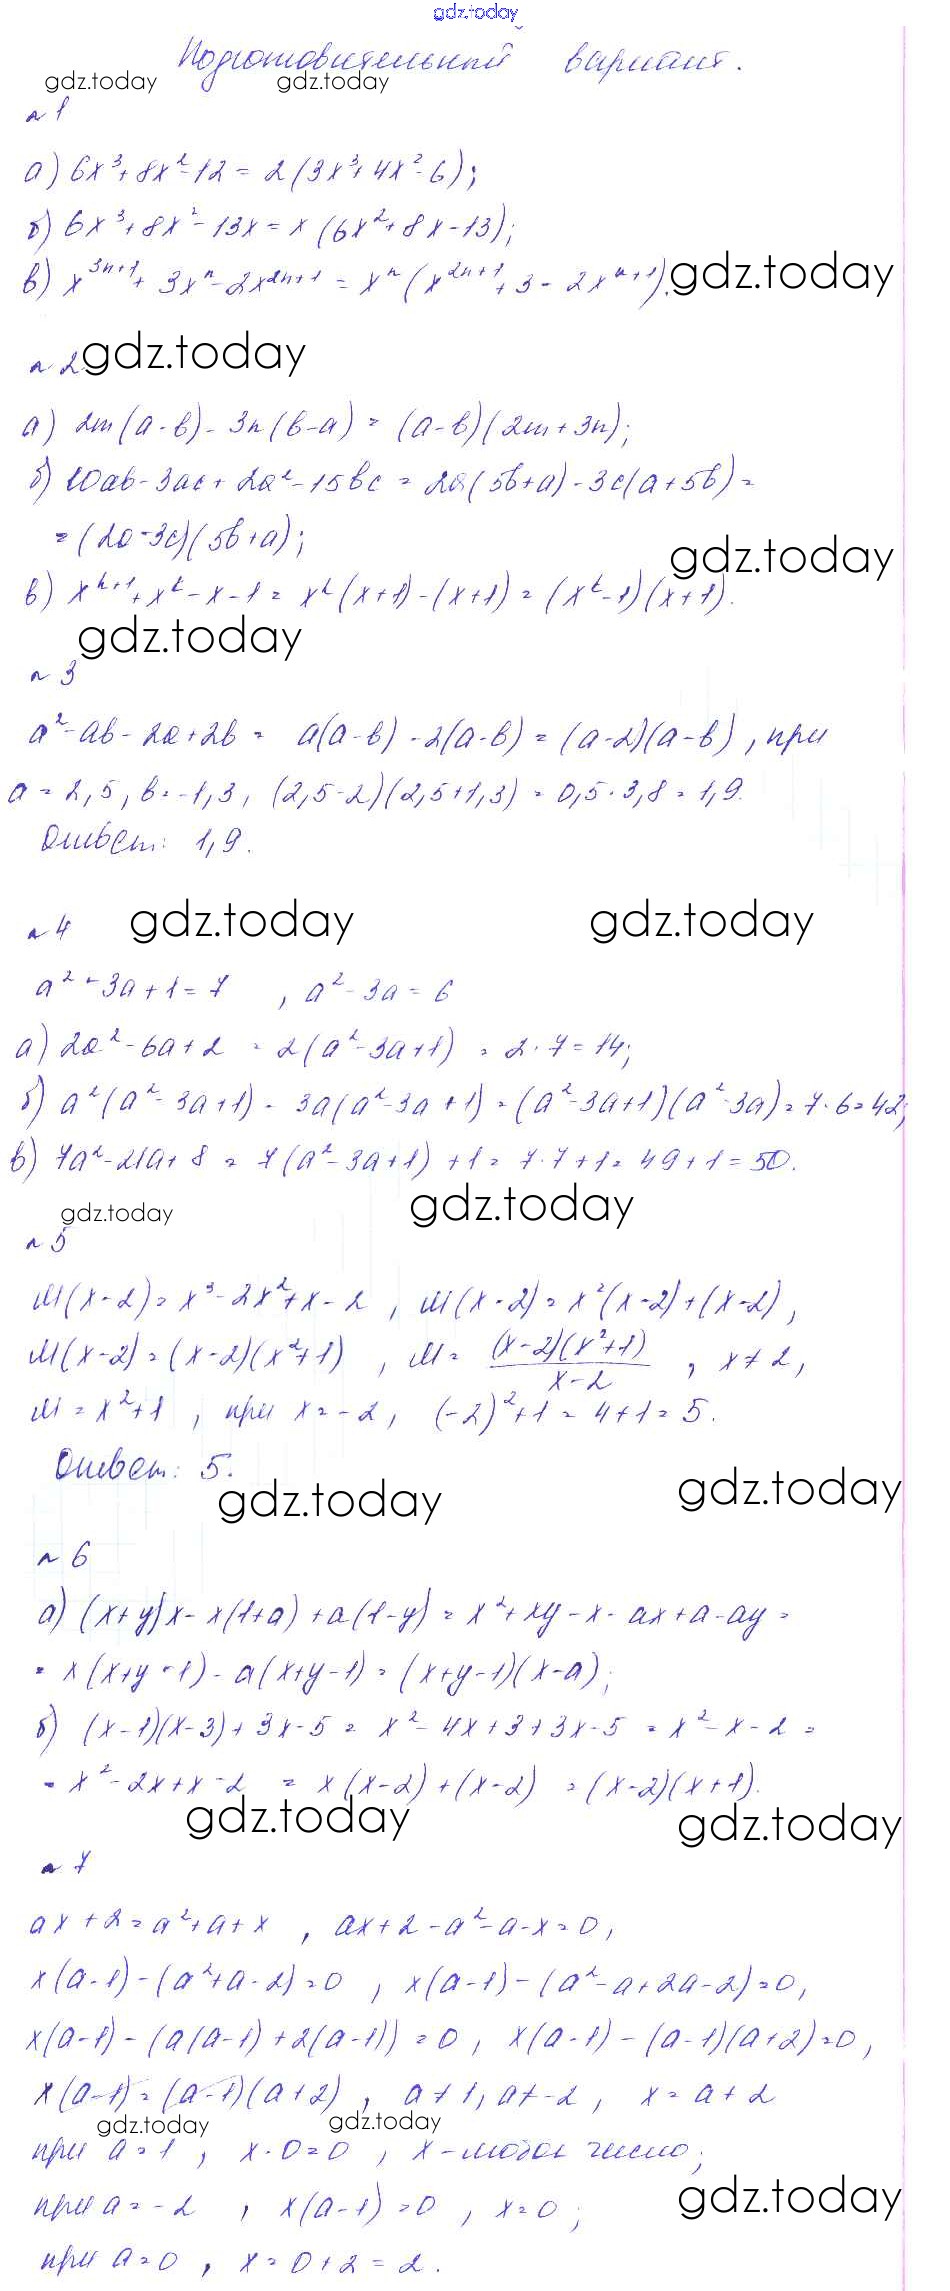 gdz.today
Подготовительный вариант.
gdz.today gdz.today
№ 1
а) 6x³+8x²-12 = 2(3x³+4x²-6);
б) 6x³+8x²-13x = x(6x²+8x-13);
в) x³ⁿ⁺¹+3xⁿ-2x²ⁿ⁺¹ = xⁿ(x²ⁿ⁺¹+3-2xⁿ⁺¹). gdz.today
№ 2 gdz.today
а) 2m(a-b)-3n(b-a) = (a-b)(2m+3n);
б) 10ab-3ac+2a²-15bc = 2a(5b+a)-3c(a+5b) =
= (2a-3c)(5b+a);
gdz.today
в) xᵏ⁺¹+xᵏ-x-1 = xᵏ(x+1)-(x+1) = (xᵏ-1)(x+1).
gdz.today
№ 3
a²-ab-2a+2b = a(a-b)-2(a-b) = (a-2)(a-b), при
a = 2,5, b = -1,3, (2,5-2)(2,5+1,3) = 0,5·3,8 = 1,9.
Ответ: 1,9.
№ 4 gdz.today gdz.today
a²-3a+1=7, a²-3a=6
а) 2a²-6a+2 = 2(a²-3a+1) = 2·7=14;
б) a²(a²-3a+1)-3a(a²-3a+1)=(a²-3a+1)(a²-3a)=7·6=42;
в) 7a²-21a+8 = 7(a²-3a+1)+1=7·7+1=49+1=50.
gdz.today gdz.today
№ 5
M(x-2)=x³-2x²+x-2, M(x-2)=x²(x-2)+(x-2),
M(x-2)=(x-2)(x²+1), M=(x-2)(x²+1)/(x-2), x≠2,
M=x²+1, при x=-2, (-2)²+1=4+1=5.
Ответ: 5.
gdz.today gdz.today
№ 6
а) (x+y)x-x(1+a)+a(1-y)=x²+xy-x-ax+a-ay=
= x(x+y-1)-a(x+y-1)=(x+y-1)(x-a);
б) (x-1)(x-3)+3x-5 = x²-4x+3+3x-5 = x²-x-2 =
= x²-2x+x-2 = x(x-2)+(x-2) = (x-2)(x+1).
gdz.today gdz.today
№ 7
ax+2=a²+a+x, ax+2-a²-a-x=0,
x(a-1)-(a²+a-2)=0, x(a-1)-(a²-a+2a-2)=0,
x(a-1)-(a(a-1)+2(a-1))=0, x(a-1)-(a-1)(a+2)=0,
x(a-1)=(a-1)(a+2), a≠1, a≠-2, x=a+2
gdz.today gdz.today
при a=1, x·0=0, x-любое число;
при a=-2, x(a-1)=0, x=0; gdz.today
при a=0, x=0+2=2.